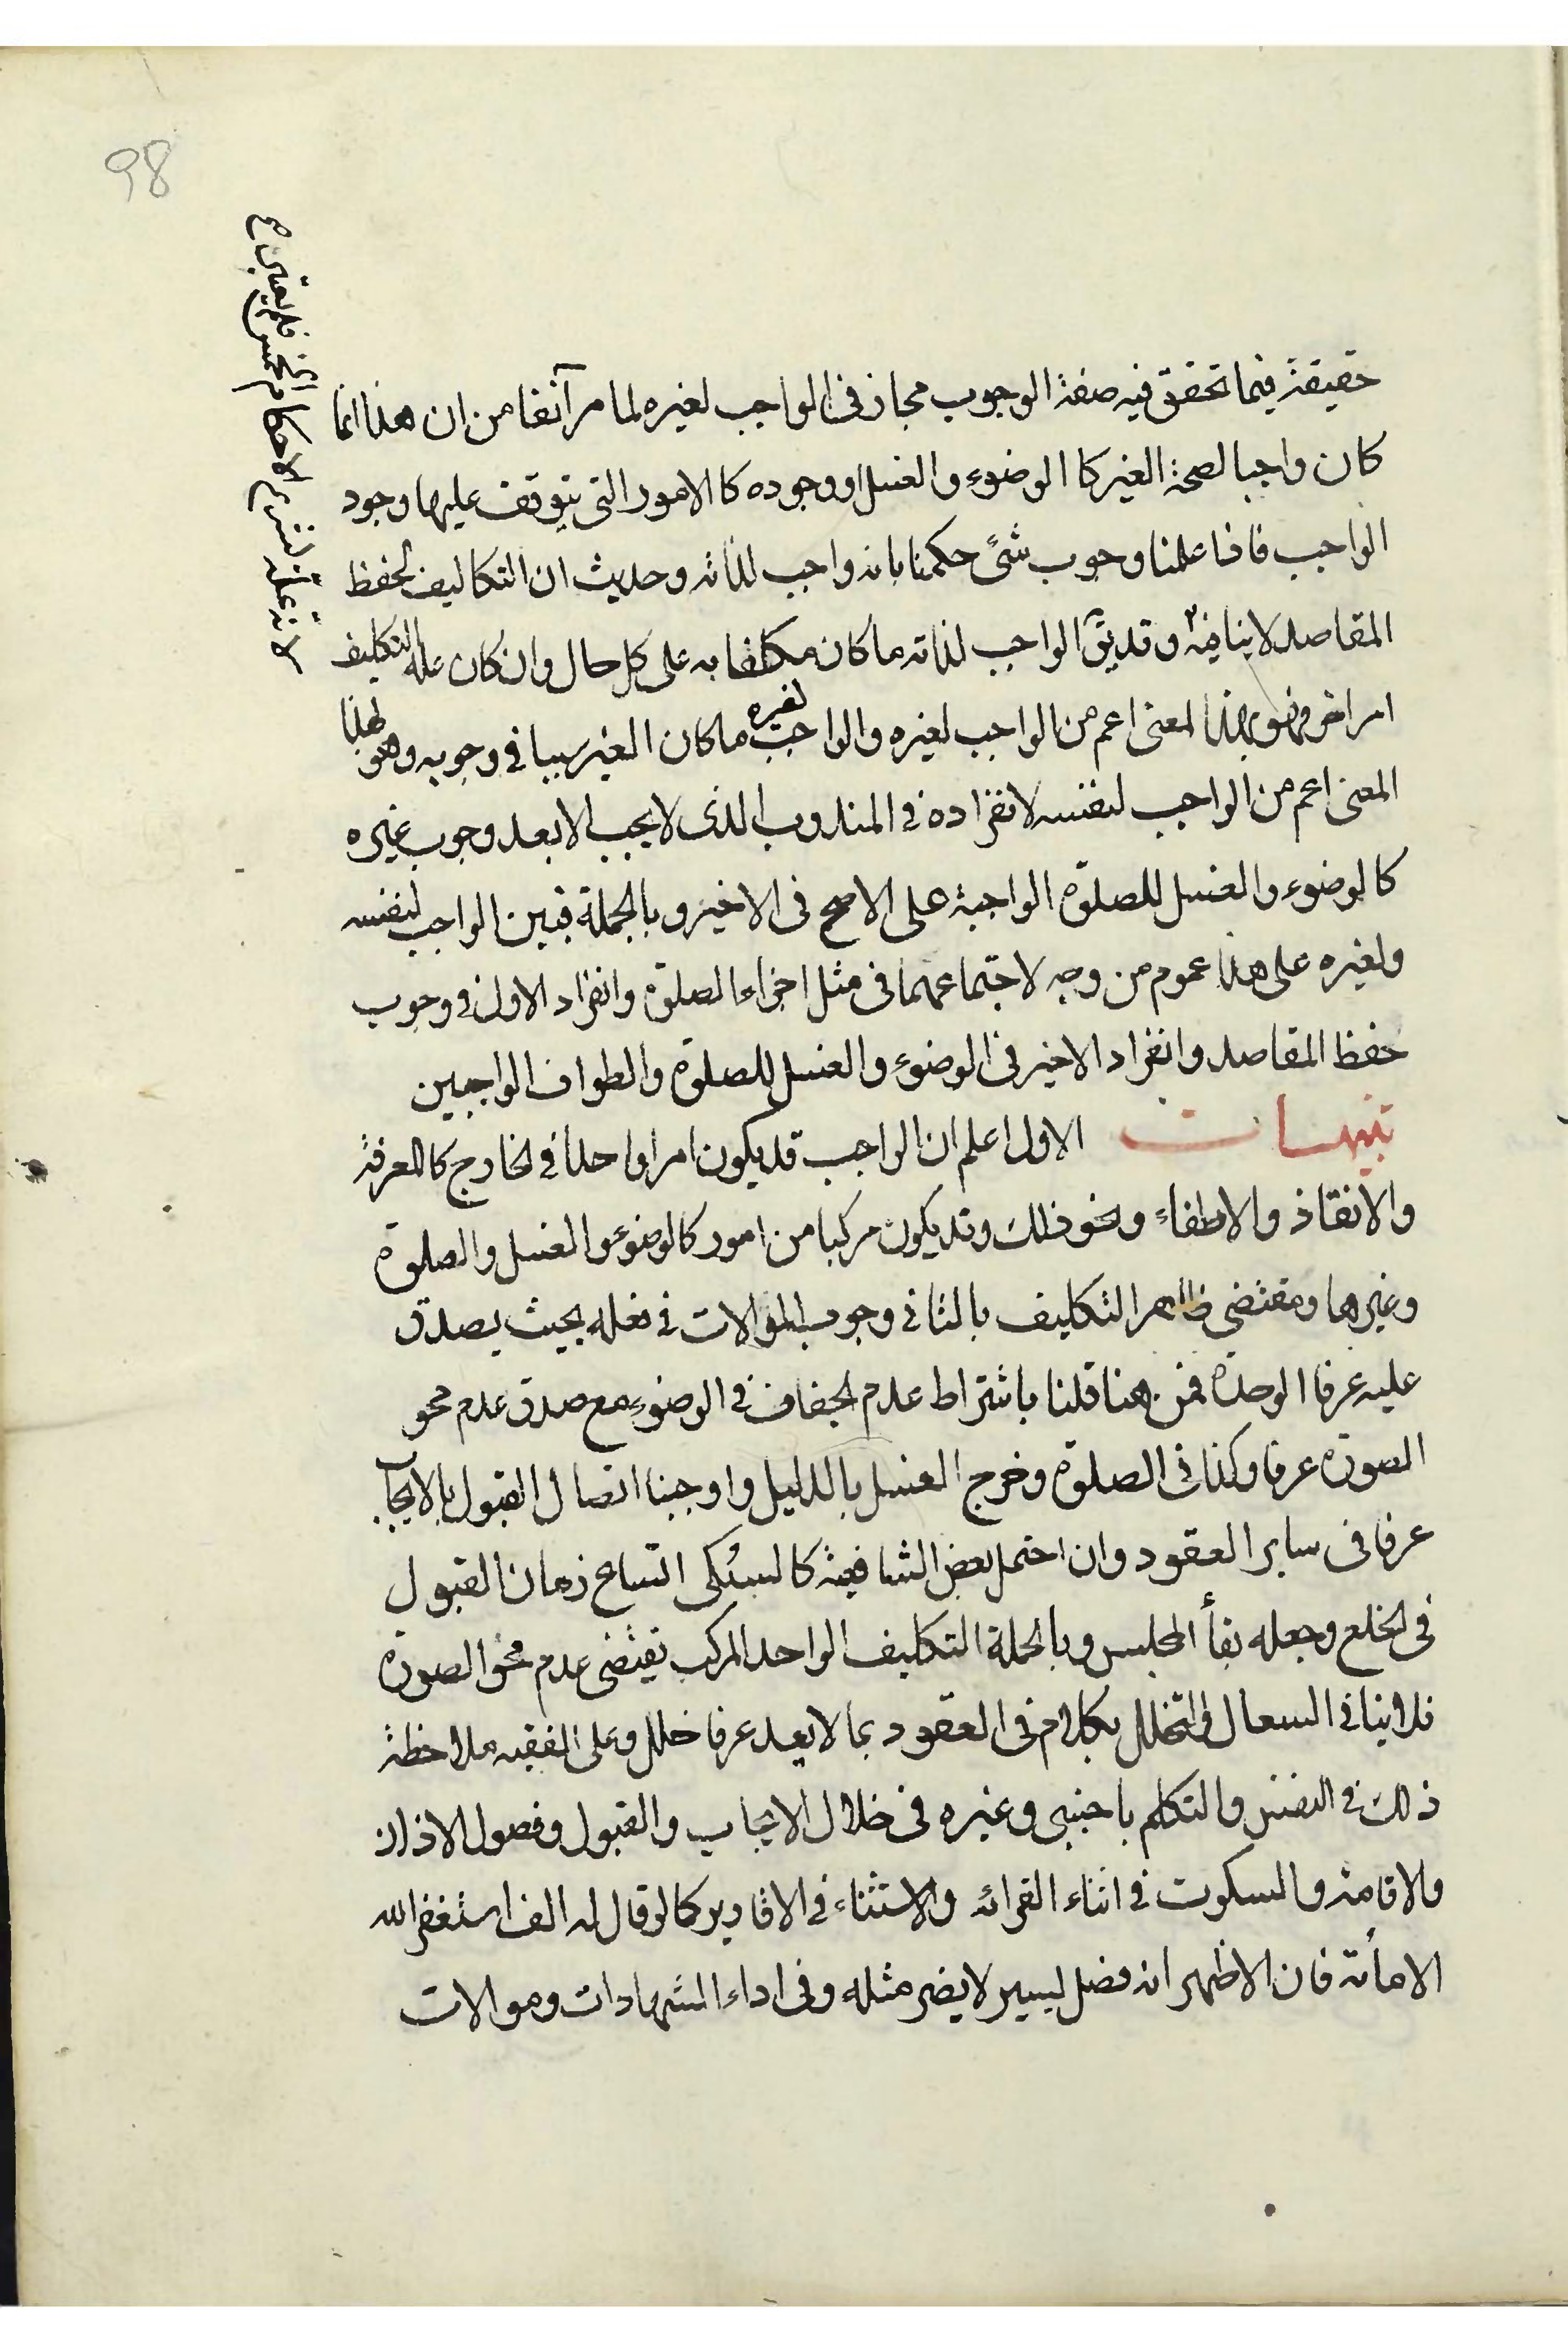 98
حقيقة فيما تحقق فيه صفة الوجوب مجاز في الواجب لغيره لما مر آنفا من ان هذا انما
كان واجبا لصحة الغير كا الوضوء والغسل او وجوده كا الامور التى يتوقف عليها وجود
الواجب فاذا علمنا وجوب شئ حكمنا بانه واجب لذاته وحديث ان التكاليف لحفظ
المقاصد لا ينافيه وقد يق الواجب لذاته ما كان مكلفا به على كل حال وان كان علة التكليف
امر اخر فهو بهذا المعنى اعم من الواجب لغيره والواجب لغيره ما كان الغير سببا في وجوبه وهو بهذا
المعنى اعم من الواجب لنفسه لانفراده في المندوب الذى لا يجب الا بعد وجوب غيره
كا لوضوء والغسل للصلوة الواجبة على الاصح فى الاخير و بالجملة فبين الواجب لنفسه
ولغيره على هذا عموم من وجه لاجتماعهما فى مثل اجزاء الصلوة وانفراد الاول في وجوب
حفظ المقاصد وانفراد الاخير في الوضوء والغسل للصلوة والطواف الواجبين
تنبيهات الاول اعلم ان الواجب قد يكون امرا واحدا في الخارج كالمعرفة
والانقاذ والاطفاء ونحو ذلك وقد يكون مركبا من امور كالوضوء والغسل والصلوة
وغيرها ومقتضى ظاهر التكليف بالثاني وجوب الموالات في فعله بحيث يصدق
عليه عرفا الوحدة فمن هنا قلنا باشتراط عدم الجفاف في الوضوء مع صدق عدم محو
الصورة عرفا وكذا في الصلوة وخرج الغسل بالدليل واوجبنا اتصال القبول بالايجاب
عرفا فى ساير العقود وان احتمل بعض الشافعية كالسبكى اتساع زمان القبول
فى الخلع وجعله بقأ المجلس وبالجملة التكليف الواحد المركب يقتضى عدم محو الصورة
فلا ينافى السعال والتخلل بكلام فى العقود بما لا يعد عرفا خللا وعلى الفقيه ملاحظة
ذلك في التفسّ والتكلم باجنبى وغيره فى خلال الايجاب والقبول وفصول الاذان
والاقامة والسكوت في اثناء القرائه والاستثناء في الاقارير كما لو قال له الف استغفر الله
الا مأة فان الاظهر انه فصل يسير لا يضر مثله وفى اداء الشهادات وموالات
لانه علة لشرع الاحكام